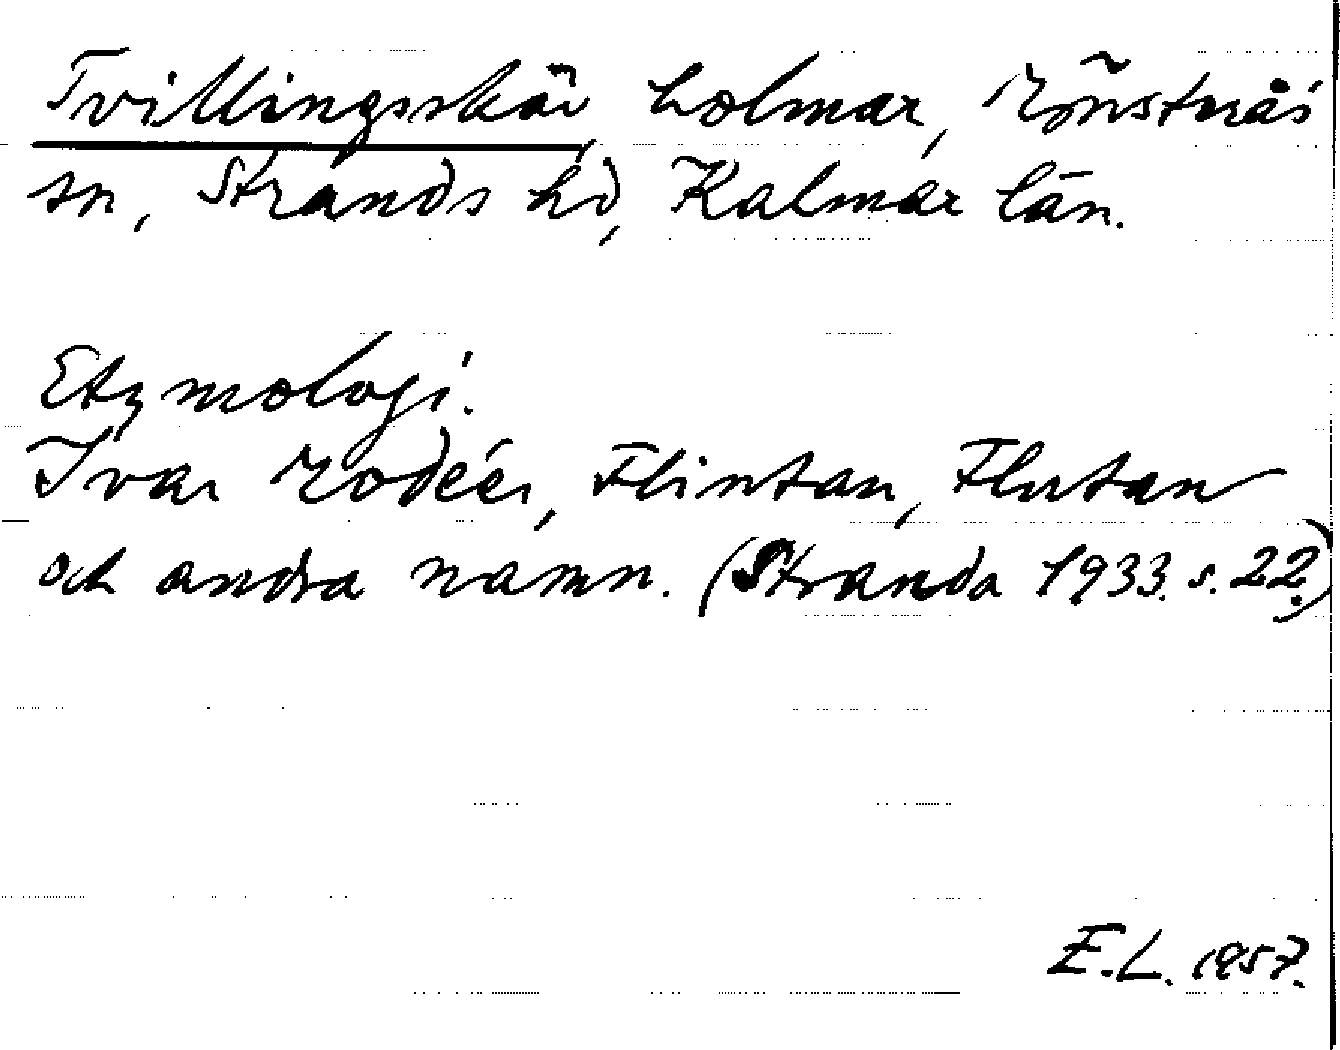 Tvillingsskär, holmar, Mönsterås
sn, Strands hd, Kalmar län.
Etymologi.
Ivar Modéer, Flintan, Flutan
och andra namn. (Stranda 1933. s. 22.)
E.L. 1957.